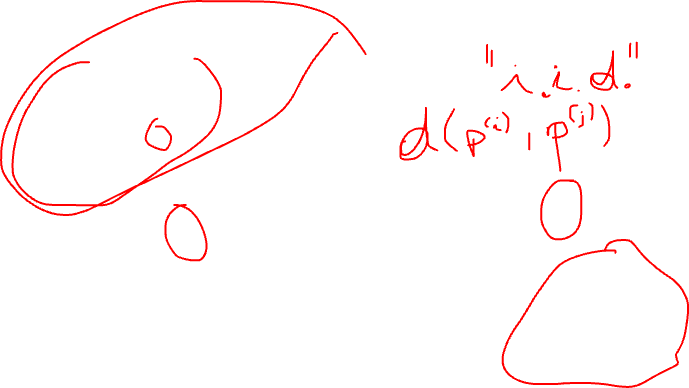 "i.i.d."
d(p^(i), p^(j))